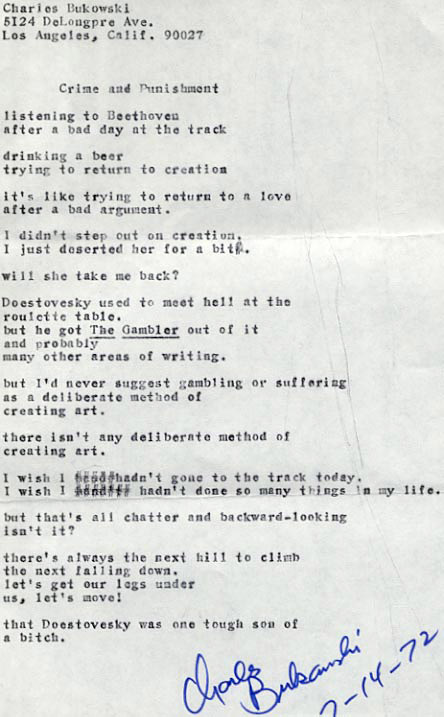 Charles Bukowski
5124 DeLongpre Ave.
Los Angeles, Calif. 90027
Crime and Punishment
listening to Beethoven
after a bad day at the track
drinking a beer
trying to return to creation
it's like trying to return to a love
after a bad argument.
I didn't step out on creation.
I just deserted her for a bit.
will she take me back?
Doestovesky used to meet hell at the
roulette table.
but he got The Gambler out of it
and probably
many other areas of writing.
but I'd never suggest gambling or suffering
as a deliberate method of
creating art.
there isn't any deliberate method of
creating art.
I wish I hadn't gone to the track today.
I wish I hadn't done so many things in my life.
but that's all chatter and backward-looking
isn't it?
there's always the next hill to climb
the next falling down.
let's get our legs under
us, let's move!
that Doestovesky was one tough son of
a bitch.
Charles
Bukowski
7-14-72